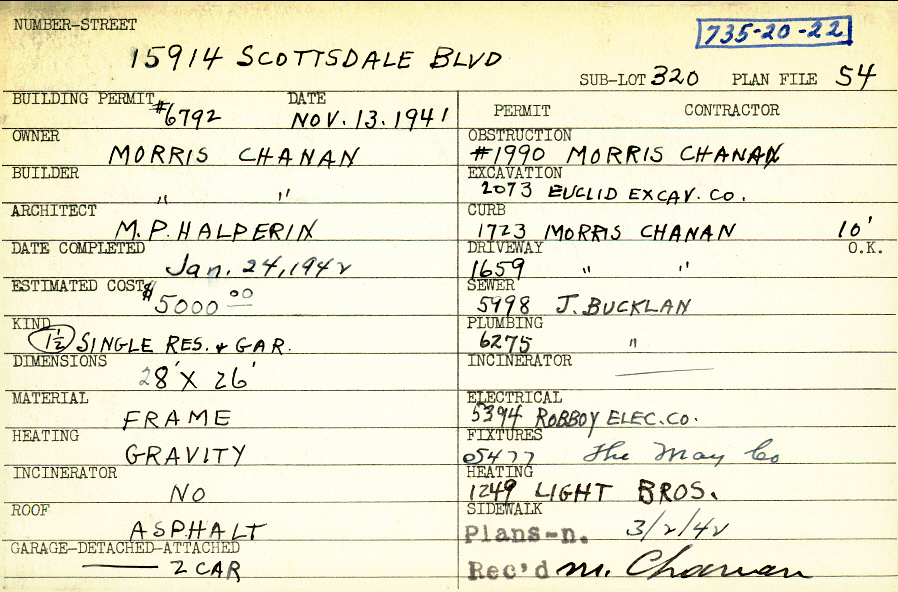 NUMBER-STREET
735-20-22
15914 SCOTTSDALE BLVD
SUB-LOT 320 PLAN FILE 54
BUILDING PERMIT #6792 DATE NOV. 13. 1941
OWNER MORRIS CHANAN
BUILDER " "
ARCHITECT M. P. HALPERIN
DATE COMPLETED Jan. 24, 1942
ESTIMATED COST $5000 00
KIND 1½ SINGLE RES. & GAR.
DIMENSIONS 28' X 26'
MATERIAL FRAME
HEATING GRAVITY
INCINERATOR NO
ROOF ASPHALT
GARAGE-DETACHED-ATTACHED
2 CAR
PERMIT CONTRACTOR
OBSTRUCTION
#1990 MORRIS CHANAN
EXCAVATION
2073 EUCLID EXCAV. CO.
CURB
1723 MORRIS CHANAN 10'
DRIVEWAY O.K.
1659 " "
SEWER
5998 J. BUCKLAN
PLUMBING
6275 "
INCINERATOR
ELECTRICAL
5394 ROBBOY ELEC. CO.
FIXTURES
05477 The May Co
HEATING
1249 LIGHT BROS.
SIDEWALK
Plans-n. 3/2/42
Rec'd M. Chanan